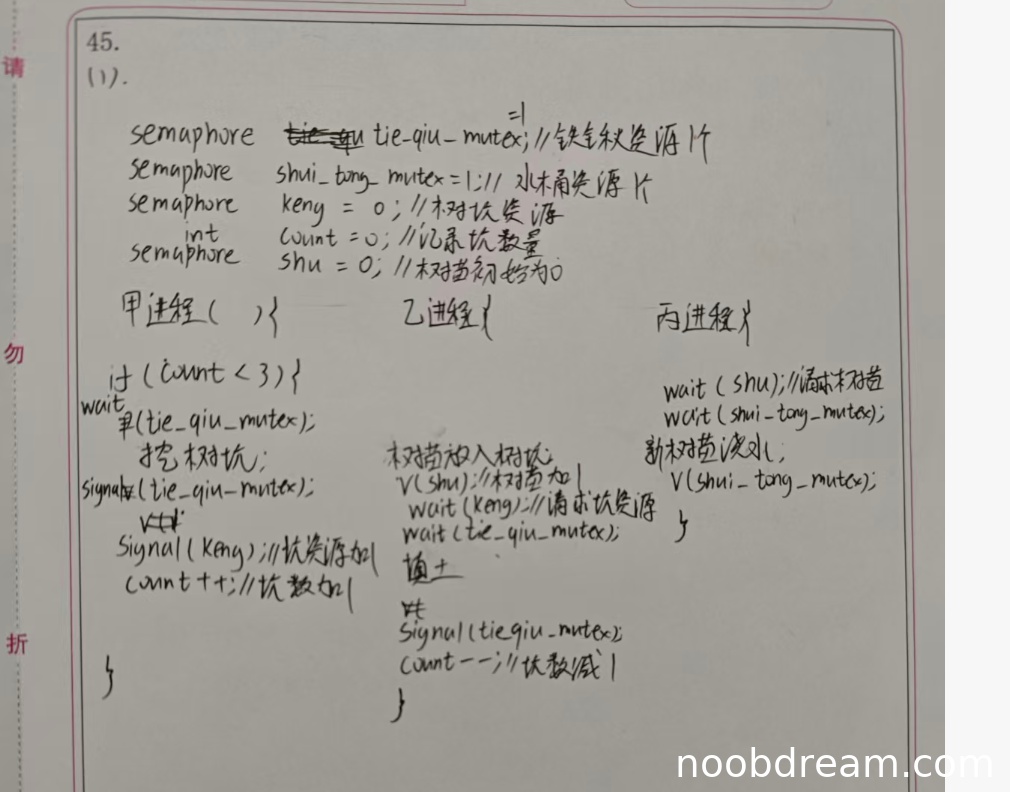 请
勿
折
45.
(1).
semaphore tie-qiu_mutex=1; //铁锹资源1个
semaphore shui_tong_mutex=1; // 水桶资源1个
semaphore keng = 0; //树坑资源
int count = 0; //记录坑数量
semaphore shu = 0; //树苗初始为0
甲进程( ){
if (count < 3) {
wait(tie_qiu_mutex);
挖树坑;
signal(tie_qiu_mutex);
signal(keng); //坑资源加1
count++; //坑数加1
}
乙进程{
树苗放入树坑;
V(shu); //树苗加1
wait(keng); //请求坑资源
wait(tie_qiu_mutex);
填土
signal(tieqiu_mutex);
count--; //坑数减1
}
丙进程{
wait(shu); //请求树苗
wait(shui_tong_mutex);
新树苗浇水;
V(shui_tong_mutex);
}
noobdream.com